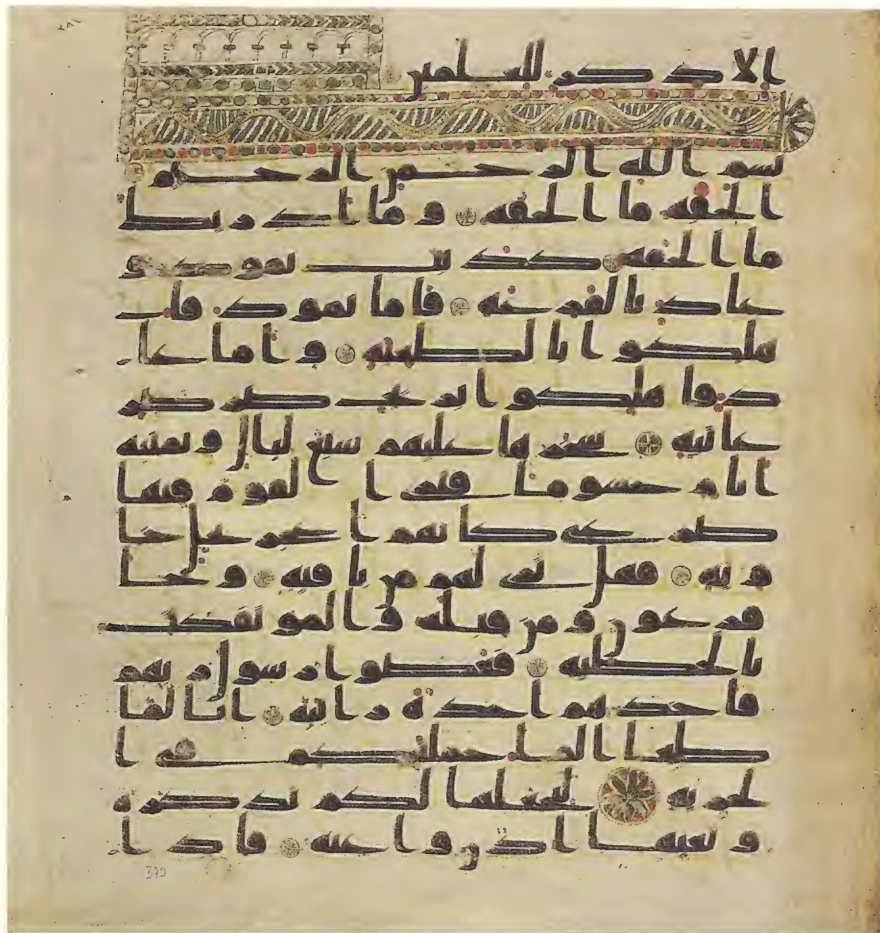 الا ذكر للعلمين
بسم الله الرحمن الرحيم
الحقه ما الحقه وما ادريك
ما الحقه كذبت ثمود و
عاد بالقرعه فاما ثمود فا
هلكوا بالطغيه واما عا
د فاهلكوا بريح صرصر
عاتيه سخرها عليهم سبع ليال وثمنيه
ايام حسوما فترى القوم فيها
صرعى كانهم اعجز نخل خا
ويه فهل ترى لهم من باقيه وجا
فرعون ومن قبله والموتفكت
بالخطيه فعصوا رسول ربهم
فاخذهم اخذة رابيه انا لما
طغا الما حملنكم في ا
لجريه لنجعلها لكم تذكره
وتعيها اذن وعيه فاذا
370